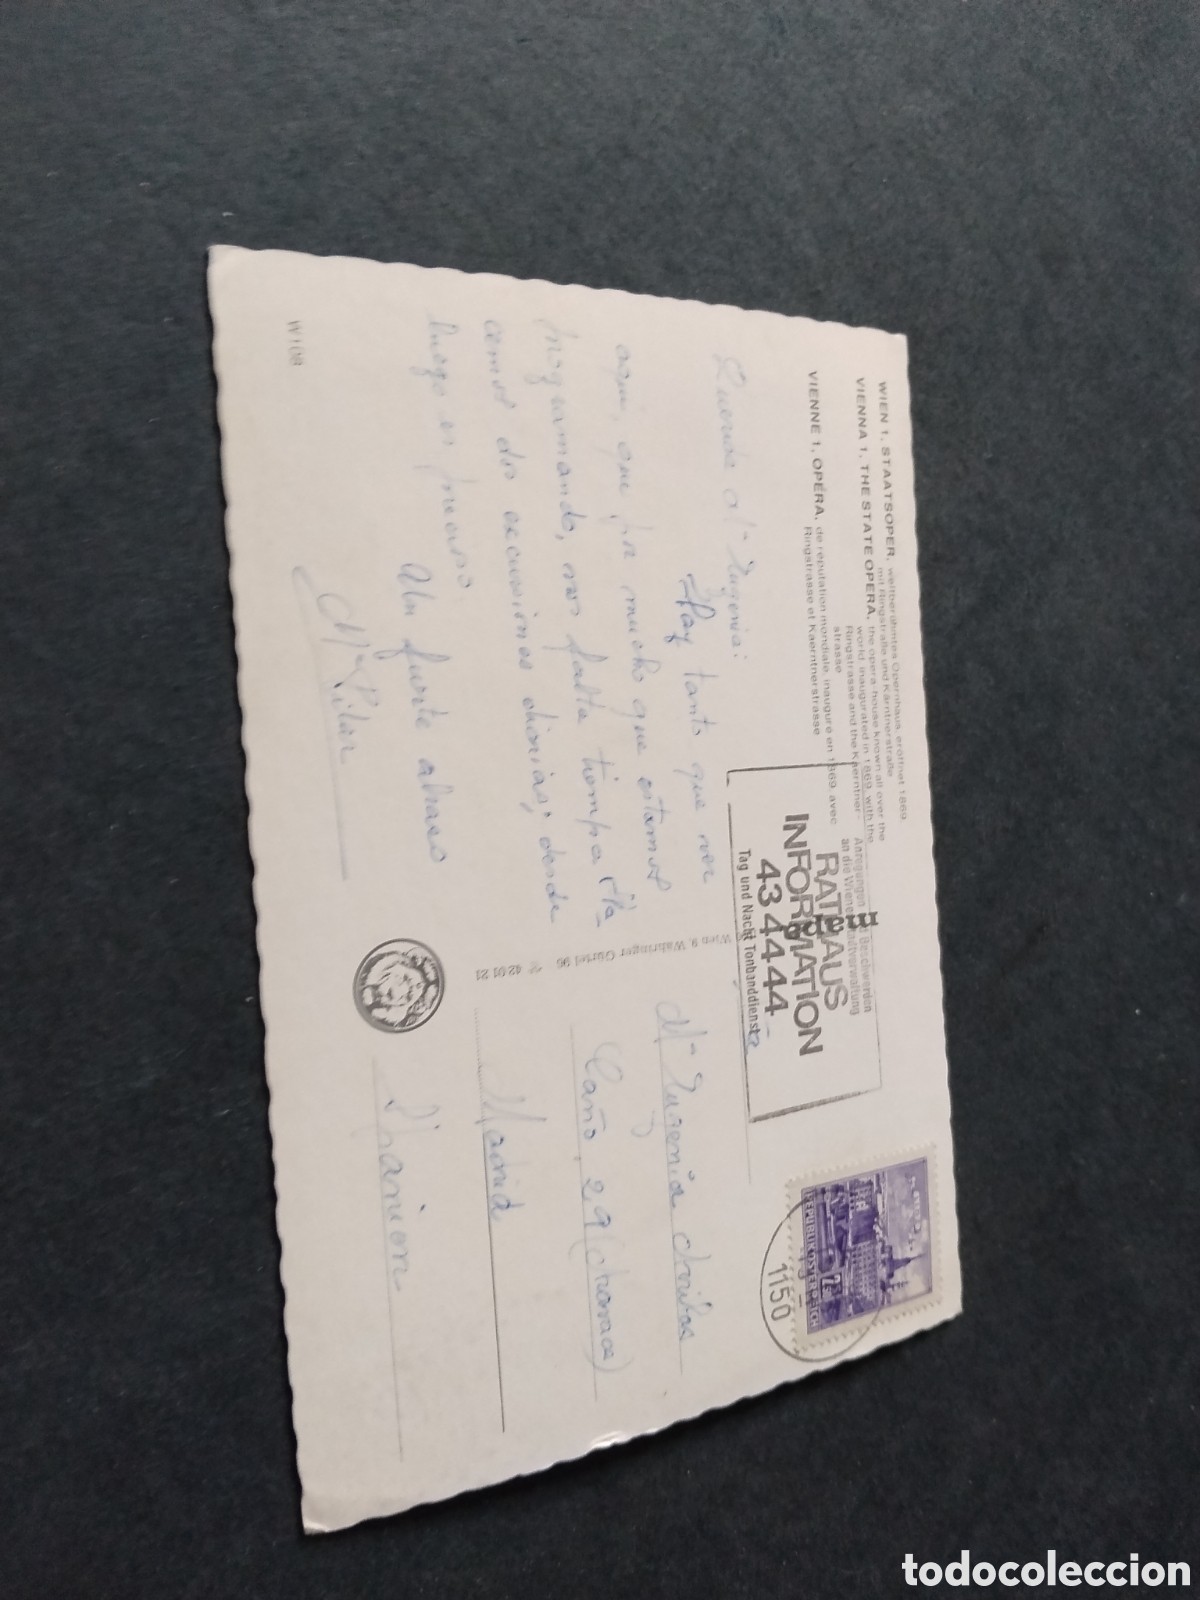 WIEN 1, STAATSOPER, weltberühmtes Opernhaus, eröffnet 1869,
mit Ringstraße und Kärntnerstraße
VIENNA 1, THE STATE OPERA, the opera-house known all over the
world, inaugurated in 1869, with the
Ringstrasse and the Kaerntner-
strasse
VIENNE 1, OPÉRA, de réputation mondiale, inaugurée en 1869, avec
Ringstrasse et Kaerntnerstrasse
Querida Mª Eugenia:
Hay tanto que ver
aquí, que por mucho que estamos
programando, nos falta tiempo. Ha-
cemos dos excursiones diarias; desde
luego es precioso
Un fuerte abrazo
Mª Pilar
W108
Wien 9, Währinger Gürtel 96
42 01 21
Anregungen und Beschwerden
an die Wiener Stadtverwaltung
RATHAUS
INFORMATION
43 44 44
Tag und Nacht Tonbanddienst
1150
REPUBLIK ÖSTERREICH
Mª Eugenia
Caño, 29
Madrid
todocoleccion